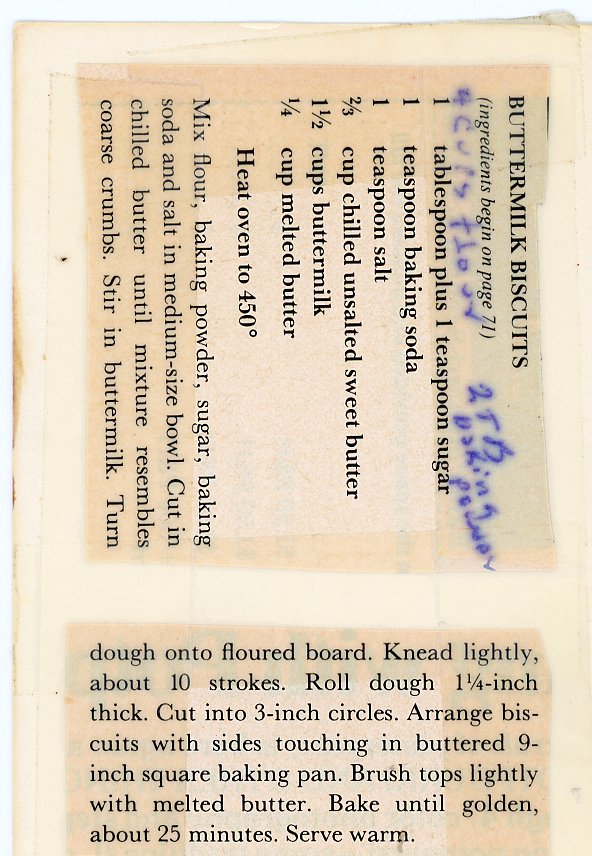 BUTTERMILK BISCUITS
(ingredients begin on page 71)
4 Cups flour
2 TB
baking
powder
1 tablespoon plus 1 teaspoon sugar
1 teaspoon baking soda
1 teaspoon salt
⅔ cup chilled unsalted sweet butter
1½ cups buttermilk
¼ cup melted butter
Heat oven to 450°
Mix flour, baking powder, sugar, baking
soda and salt in medium-size bowl. Cut in
chilled butter until mixture resembles
coarse crumbs. Stir in buttermilk. Turn
dough onto floured board. Knead lightly,
about 10 strokes. Roll dough 1¼-inch
thick. Cut into 3-inch circles. Arrange bis-
cuits with sides touching in buttered 9-
inch square baking pan. Brush tops lightly
with melted butter. Bake until golden,
about 25 minutes. Serve warm.